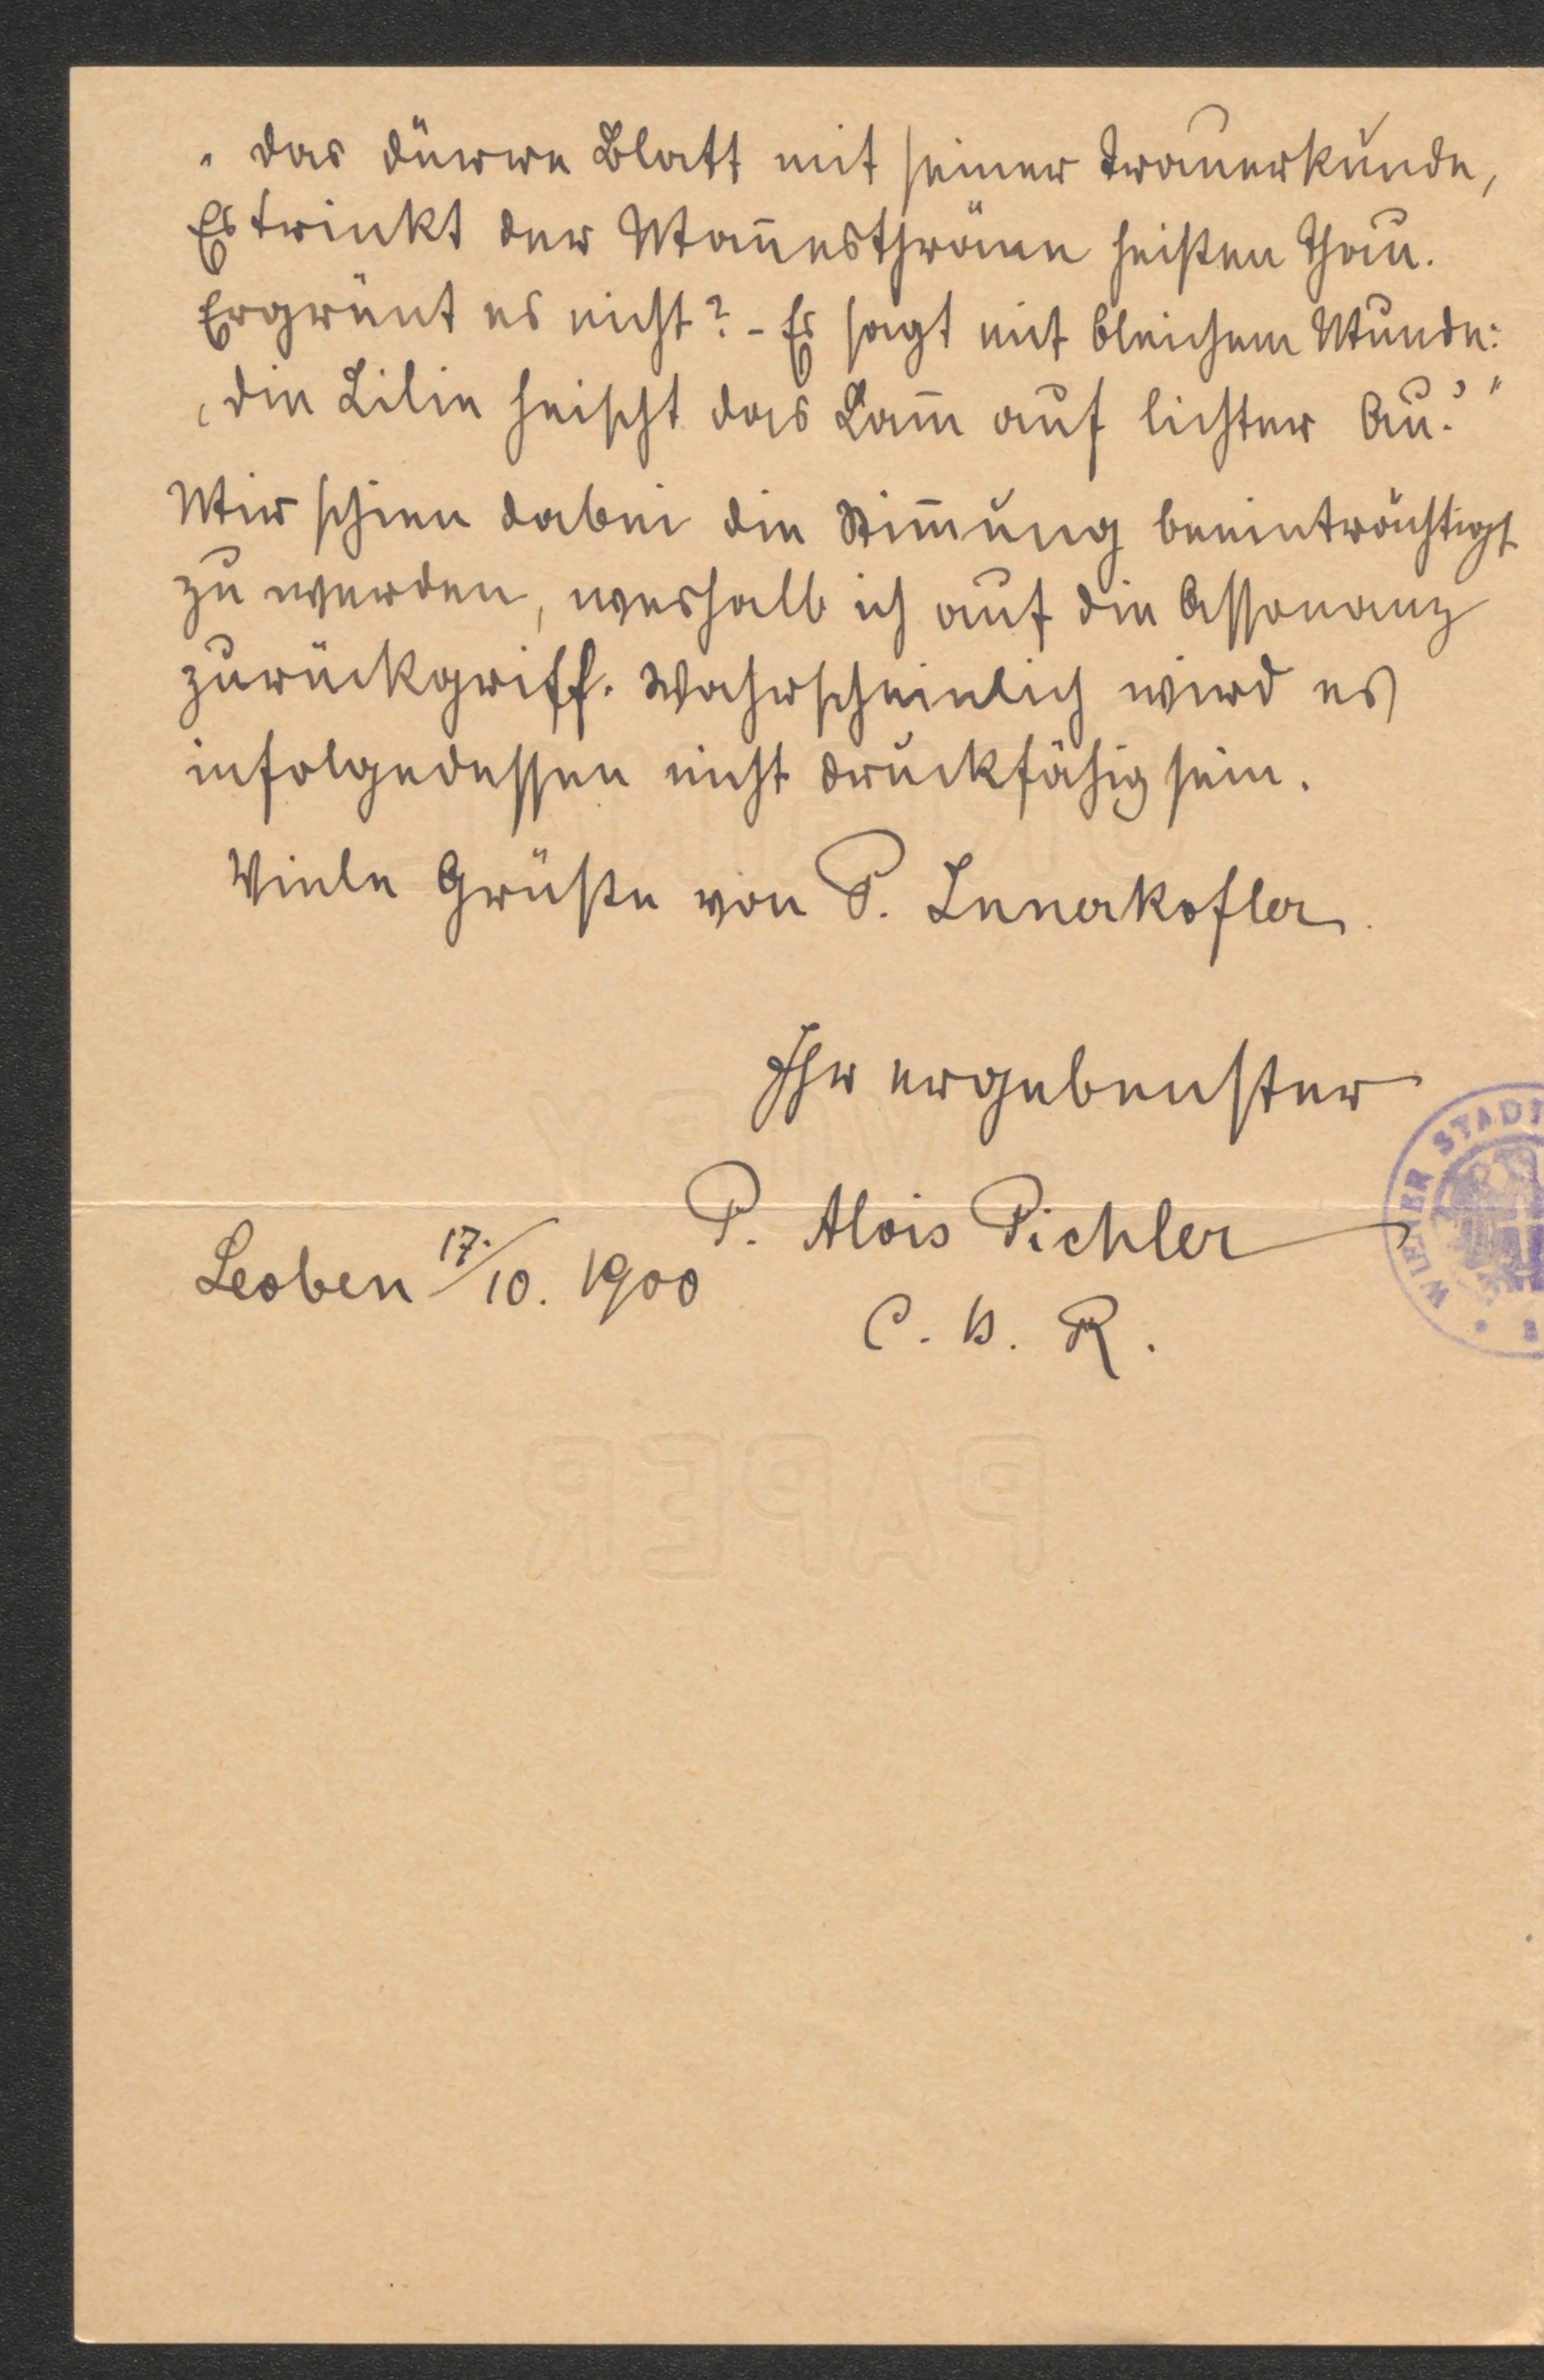 „Das dürre Blatt mit seiner Trauerkunde,
Es trinkt der Man̄esthräne heißen Thau.
Ergrünt es nicht? – Es sagt mit bleichem Munde:
‚Die Lilie heischt das Lam̄ auf lichter Au.‘“
Mir schien dabei die Stim̄ung beeinträchtigt
zu werden, weshalb ich auf die Assonanz
zurückgriff. Wahrscheinlich wird es
infolgedessen nicht druckfähig sein.
Viele Grüße von P. Innerkofler.
Ihr ergebenster
P. Alois Pichler
Leoben 17./10. 1900
C. Ss. R.
WIENER STADT
PAPER